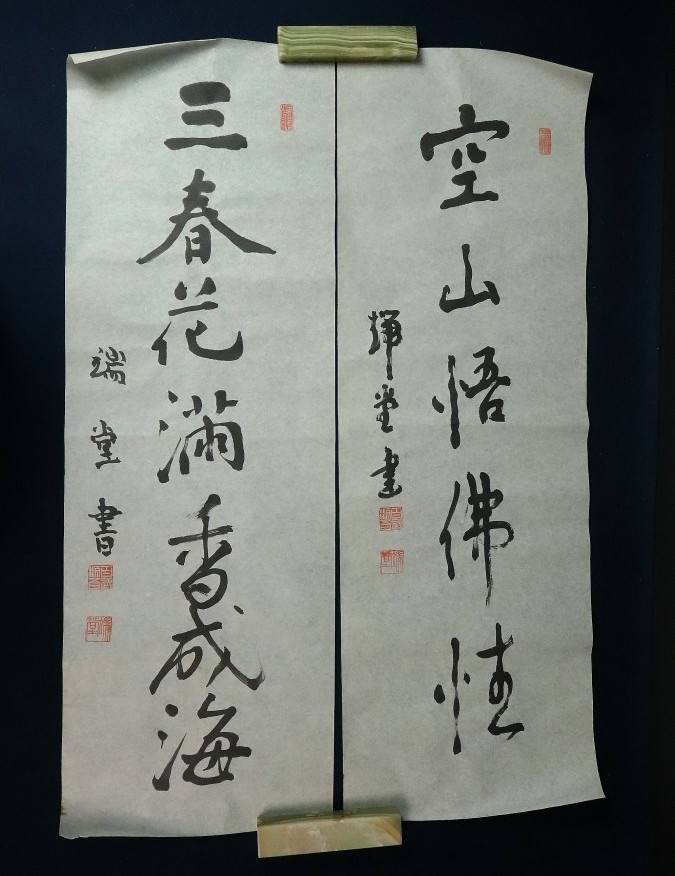 空山悟佛性
瑞堂書
三春花滿香成海
瑞堂書